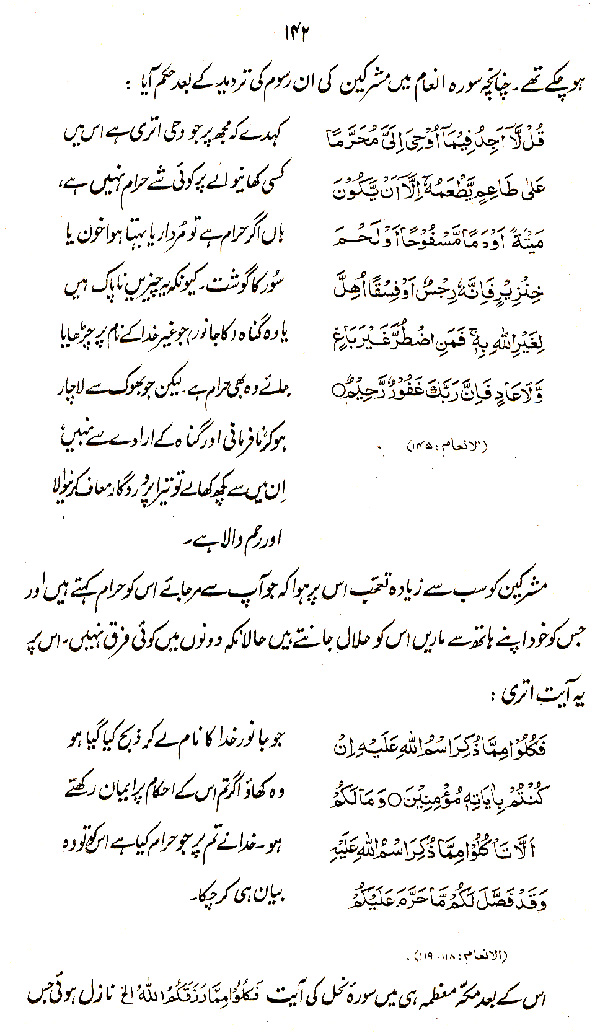 ۱۴۲
ہو چکے تھے۔ چنانچہ سورہ انعام میں مشرکین کی ان رسوم کی تردید کے بعد حکم آیا :
قُلْ لَّآ اَجِدُ فِيْمَآ اُوْحِىَ اِلَىَّ مُحَرَّمًا
عَلٰى طَاعِمٍ يَّطْعَمُهٗٓ اِلَّآ اَنْ يَّكُوْنَ
مَيْتَةً اَوْ دَمًا مَّسْفُوْحًا اَوْ لَحْمَ
خِنْزِيْرٍ فَاِنَّهٗ رِجْسٌ اَوْ فِسْقًا اُهِلَّ
لِغَيْرِ اللّٰهِ بِهٖ ۚ فَمَنِ اضْطُرَّ غَيْرَ بَاغٍ
وَّلَا عَادٍ فَاِنَّ رَبَّكَ غَفُوْرٌ رَّحِيْمٌ○
(الانعام : ۱۴۵)
کہدے کہ مجھ پر جو وحی اتری ہے اس میں
کسی کھانیوالے پر کوئی شے حرام نہیں ہے،
ہاں اگر حرام ہے تو مُردار یا بہتا ہوا خون یا
سُور کا گوشت۔ کیونکہ یہ چیزیں ناپاک ہیں
یا وہ گناہ (کا جانور) جو غیر خدا کے نام پر چڑھایا
جائے وہ بھی حرام ہے۔ لیکن جو بھوک سے لاچار
ہو کر نافرمانی اور گناہ کے ارادے سے نہیں
ان میں سے کچھ کھالے تو تیرا پروردگار معاف کرنیوالا
اور رحم والا ہے۔
مشرکین کو سب سے زیادہ تعجب اس پر ہوا کہ جو آپ سے مر جائے اس کو حرام کہتے ہیں اور
جس کو خود اپنے ہاتھ سے ماریں اس کو حلال جانتے ہیں حالانکہ دونوں میں کوئی فرق نہیں۔ اس پر
یہ آیت اتری :
فَكُلُوْا مِمَّا ذُكِرَ اسْمُ اللّٰهِ عَلَيْهِ اِنْ
كُنْتُمْ بِاٰيَاتِهٖ مُؤْمِنِيْنَ○ وَمَا لَكُمْ
اَلَّا تَاْكُلُوْا مِمَّا ذُكِرَ اسْمُ اللّٰهِ عَلَيْهِ
وَقَدْ فَصَّلَ لَكُمْ مَّا حَرَّمَ عَلَيْكُمْ
(الانعام : ۱۱۸۔۱۱۹)
جو جانور خدا کا نام لے کر ذبح کیا گیا ہو
وہ کھاؤ اگر تم اس کے احکام پر ایمان رکھتے
ہو۔ خدا نے تم پر جو حرام کیا ہے اس کو تو وہ
بیان ہی کر چکا۔
اس کے بعد مکہ معظمہ ہی میں سورۂ نحل کی آیت فَكُلُوْا مِمَّا رَزَقَكُمُ اللّٰهُ الخ نازل ہوئی جس